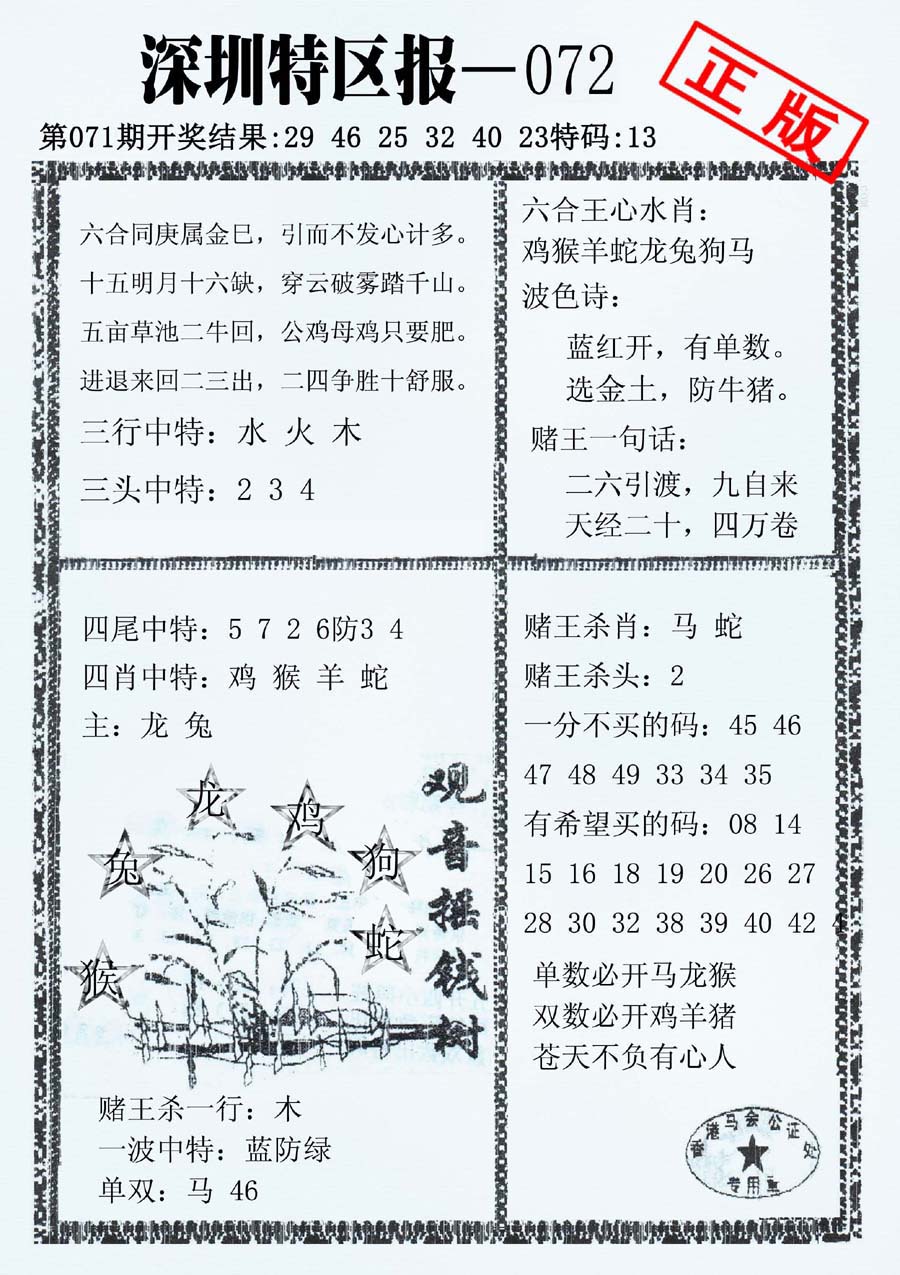 深圳特区报—072
正版
第071期开奖结果:29 46 25 32 40 23特码:13
六合同庚属金巳，引而不发心计多。
十五明月十六缺，穿云破雾踏千山。
五亩草池二牛回，公鸡母鸡只要肥。
进退来回二三出，二四争胜十舒服。
三行中特：水 火 木
三头中特：2 3 4
六合王心水肖：
鸡猴羊蛇龙兔狗马
波色诗：
蓝红开，有单数。
选金土，防牛猪。
赌王一句话：
二六引渡，九自来
天经二十，四万卷
四尾中特：5 7 2 6防3 4
四肖中特：鸡 猴 羊 蛇
主：龙 兔
龙
鸡
兔
狗
蛇
猴
观音摇钱树
赌王杀一行：木
一波中特：蓝防绿
单双：马 46
赌王杀肖：马 蛇
赌王杀头：2
一分不买的码：45 46
47 48 49 33 34 35
有希望买的码：08 14
15 16 18 19 20 26 27
28 30 32 38 39 40 42 4
单数必开马龙猴
双数必开鸡羊猪
苍天不负有心人
香港马会公证处
专用章